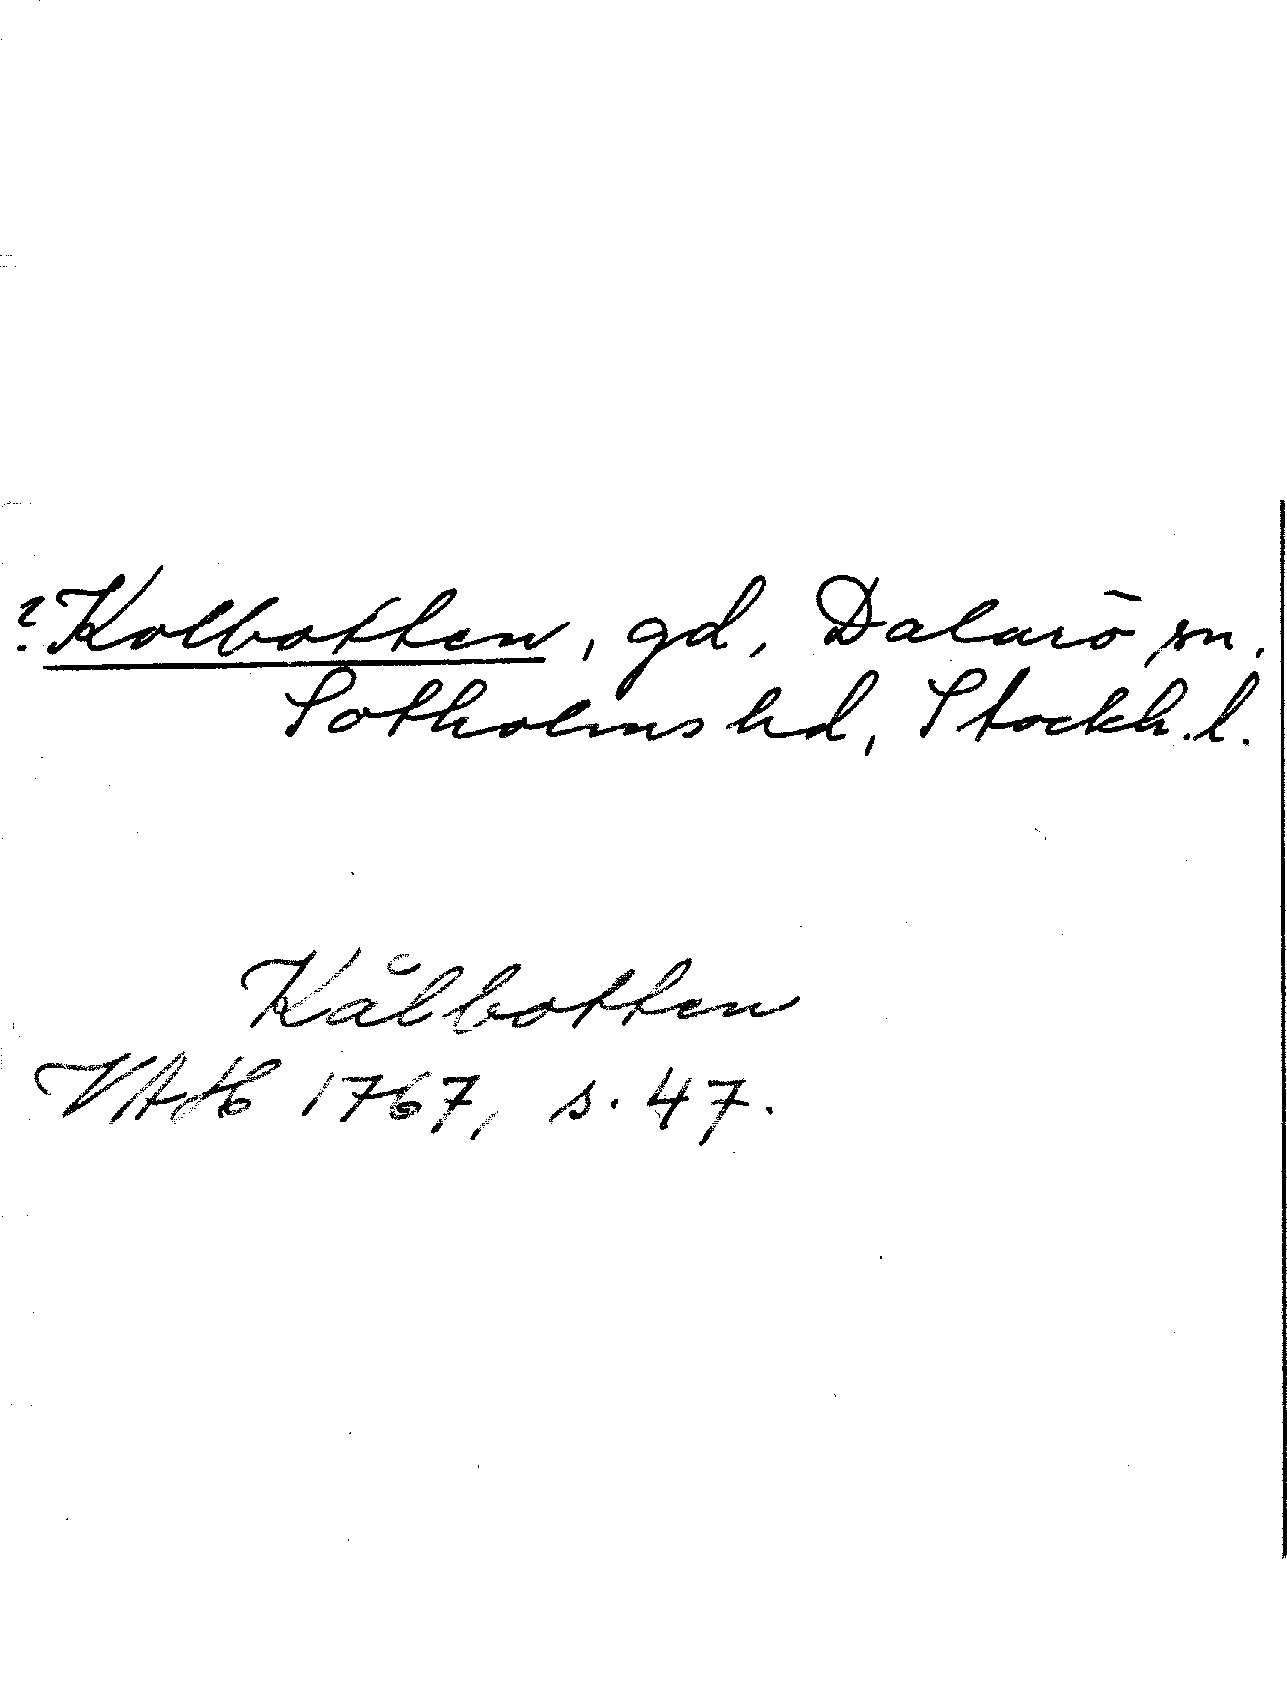 ? Kolbotten, gd, Dalarö sn.
Sotholms hd, Stockh. l.
Kålbotten
VAH 1767, s. 47.